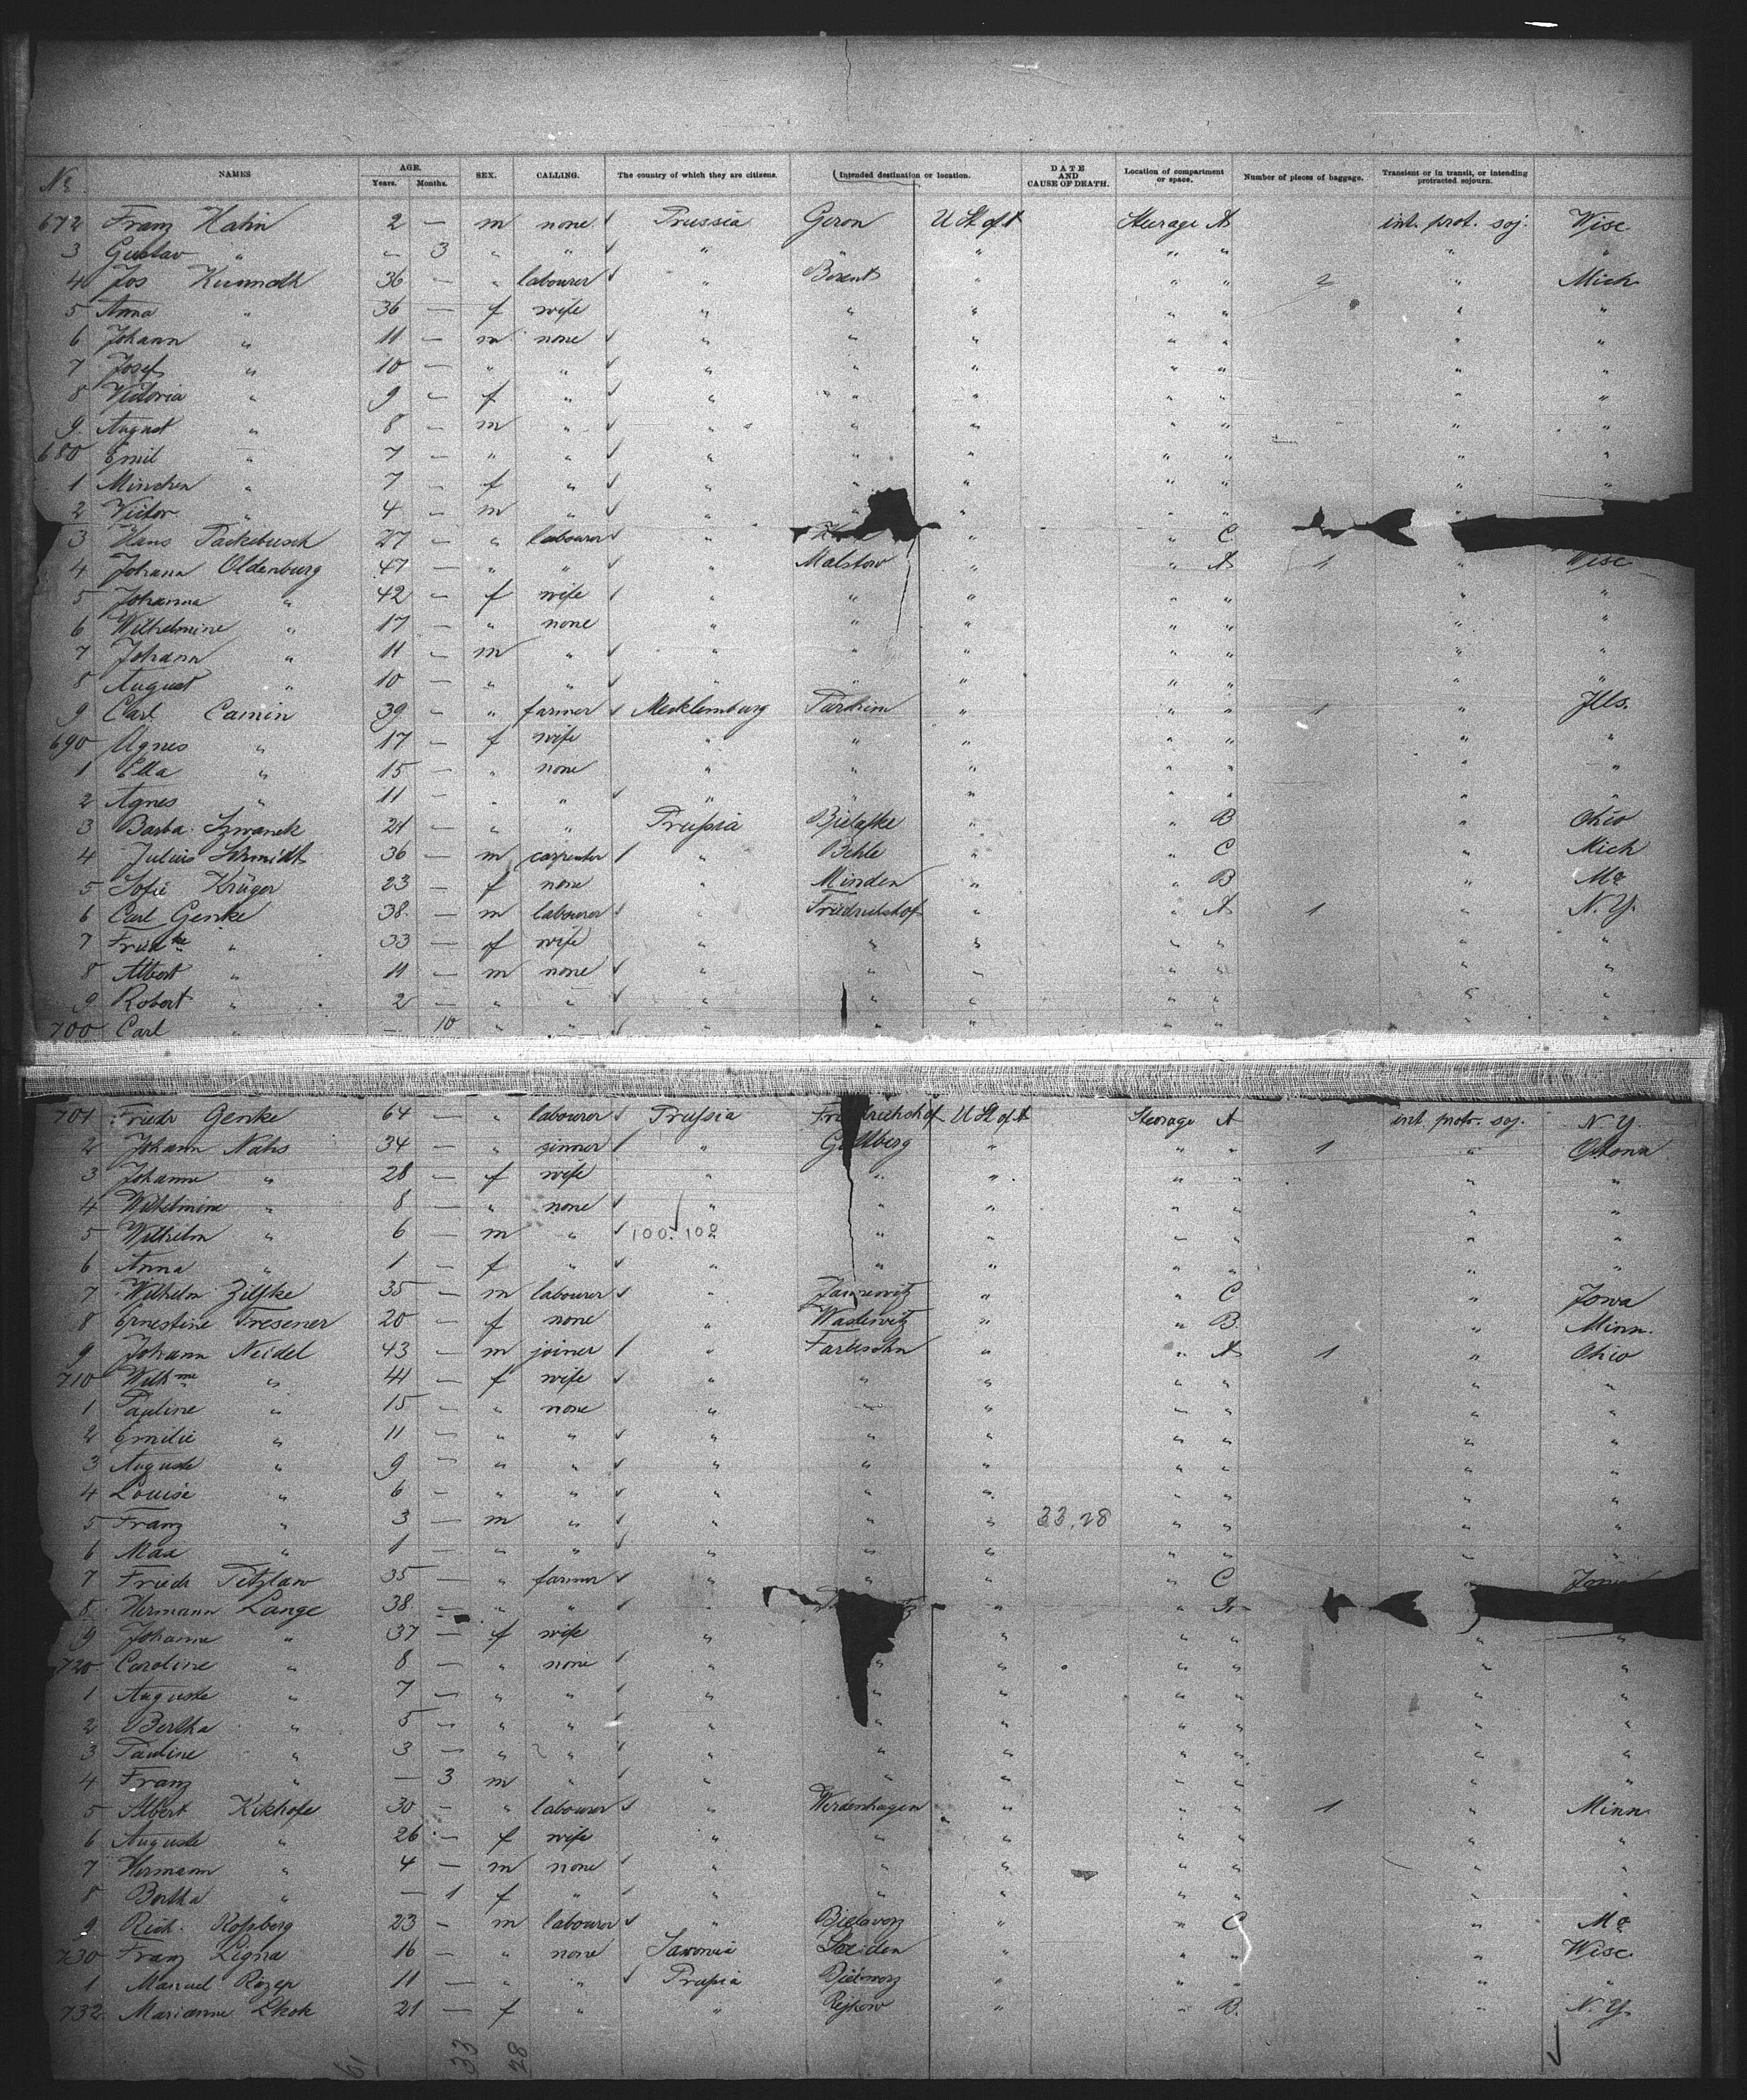 No. NAMES AGE. Years. Months. SEX. CALLING. The country of which they are citizens. Intended destination or location. DATE AND CAUSE OF DEATH. Location of compartment or space. Number of pieces of baggage. Transient or in transit, or intending protracted sojourn.
672 Franz Hahn 2 — m none Prussia Geron U St of A Steerage A int. prot. soj. Wisc
3 Gustav " " 3 " " " " " " " " "
4 Jos 36 — " labourer " Berent " " " 2 " Mich
5 Anna " 36 — f wife " " " " " " "
6 Johann " 11 — m none " " " " " " "
7 Josef " 10 — " " " " " " " " "
8 Victoria " 9 — f " " " " " " " "
9 August " 8 — m " " " " " " " "
680 Emil " 7 — " " " " " " " " "
1 Minchen " 7 — f " " " " " " " "
2 Victor " 4 — m " " " " " " "
3 Hans Packebusch 27 — " labourer " " " C
4 Johann Oldenburg 47 — " " " Malstow " " A 1 " Wisc
5 Johanna " 42 — f wife " " " " " " "
6 Wilhelmine " 17 — " none " " " " " " "
7 Johann " 11 — m " " " " " " " "
8 August " 10 — " " " " " " " " "
9 Carl Camin 39 — " farmer Mecklemburg Parchim " " " 1 " Ills.
690 Agnes " 17 — f wife " " " " " " "
1 Ella " 15 — " none " " " " " " "
2 Agnes " 11 — " " " " " " " " "
3 Barba. Szwanek 21 — " " Prussia " " B " Ohio
4 Julius Schmidt 36 — m carpenter " Behle " " C " Mich
5 Sofie Krüger 23 — f none " Minden " " B " Mo
6 Carl Genke 38 — m labourer " Friedrichshof " " A 1 " N.Y.
7 Friedke " 33 — f wife " " " " " " "
8 Albert " 11 — m none " " " " " " "
9 Robert " 2 — " " " " " " " " "
700 Carl " — 10 " " " " " " " " "
701 Friedr Genke 64 — " labourer Prussia Friedrichshof U St of A Steerage A int. protr. soj. N.Y.
2 Johann Nahs 34 — " " Gollberg " " " 1 " Ottowa
3 Johanne " 28 — f wife " " " " " " "
4 Wilhelmine " 8 — " none " " " " " " "
5 Wilhelm " 6 — m " 100.102 " " " " " "
6 Anna " 1 — f " " " " " " " "
7 Wilhelm Zilske 35 — m labourer " Jannewitz " " C " Iowa
8 Ernestine Fresener 20 — f none " " " B. " Minn.
9 Johann Neidel 43 — m joiner " " " A 1 " Ohio
710 Wilhme " 41 — f wife " " " " " " "
1 Pauline " 15 — " none " " " " " " "
2 Emilie " 11 — " " " " " " " " "
3 Auguste " 9 — " " " " " " " " "
4 Louise " 6 — " " " " " " " " "
5 Franz " 3 — m " " " " 33,28 " " " "
6 Max " 1 — " " " " " " " " "
7 Friedr Tetzlaw 35 — " farmer " " " " C "
8 Hermann Lange 38 — " " " " " A
9 Johanne " 37 — f wife " " " " " "
720 Caroline " 8 — " none " " " " " " "
1 Auguste " 7 — " " " " " " " " "
2 Bertha " 5 — " " " " " " " " "
3 Pauline " 3 — " " " " " " " " "
4 Franz " — 3 m " " " " " " " "
5 Albert Kikhofe 30 — " labourer " Werdenhagen " " " 1 " Minn
6 Auguste " 26 — f wife " " " " " " "
7 Hermann " 4 — m none " " " " " " "
8 Bertha " — 1 f " " " " " " " "
9 Rich. Rossberg 23 — m labourer " " " C " Mo
730 Franz Ligna 16 — " none " " " " Wisc.
1 11 — " " Prussia " " " " "
732 Marianne 21 — f " " " " B. " N.Y.
61 33 28